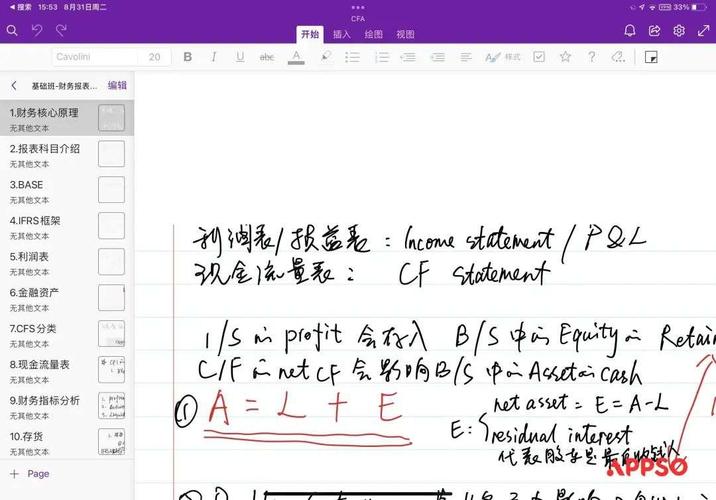 搜索 15:53 8月31日周二 33%
CFA
开始 插入 绘图 视图
Cavolini 20 B I U abc A 样式
基础班-财务报表... 编辑
1.财务核心原理
无其他文本
2.报表科目介绍
无其他文本
3.BASE
无其他文本
4.IFRS框架
无其他文本
5.利润表
无其他文本
6.金融资产
无其他文本
7.CFS分类
无其他文本
8.现金流量表
无其他文本
9.财务指标分析
无其他文本
10.存货
无其他文本
+ Page
利润表/损益表: Income statement / P&L
现金流量表: CF statement
I/S in profit 会存入 B/S 中in Equity in Retain
C/F in net CF 会影响B/S 中in Asset in cash
① A = L + E
net asset = E = A-L
E: residual interest
代表股东是最后的
APPSO